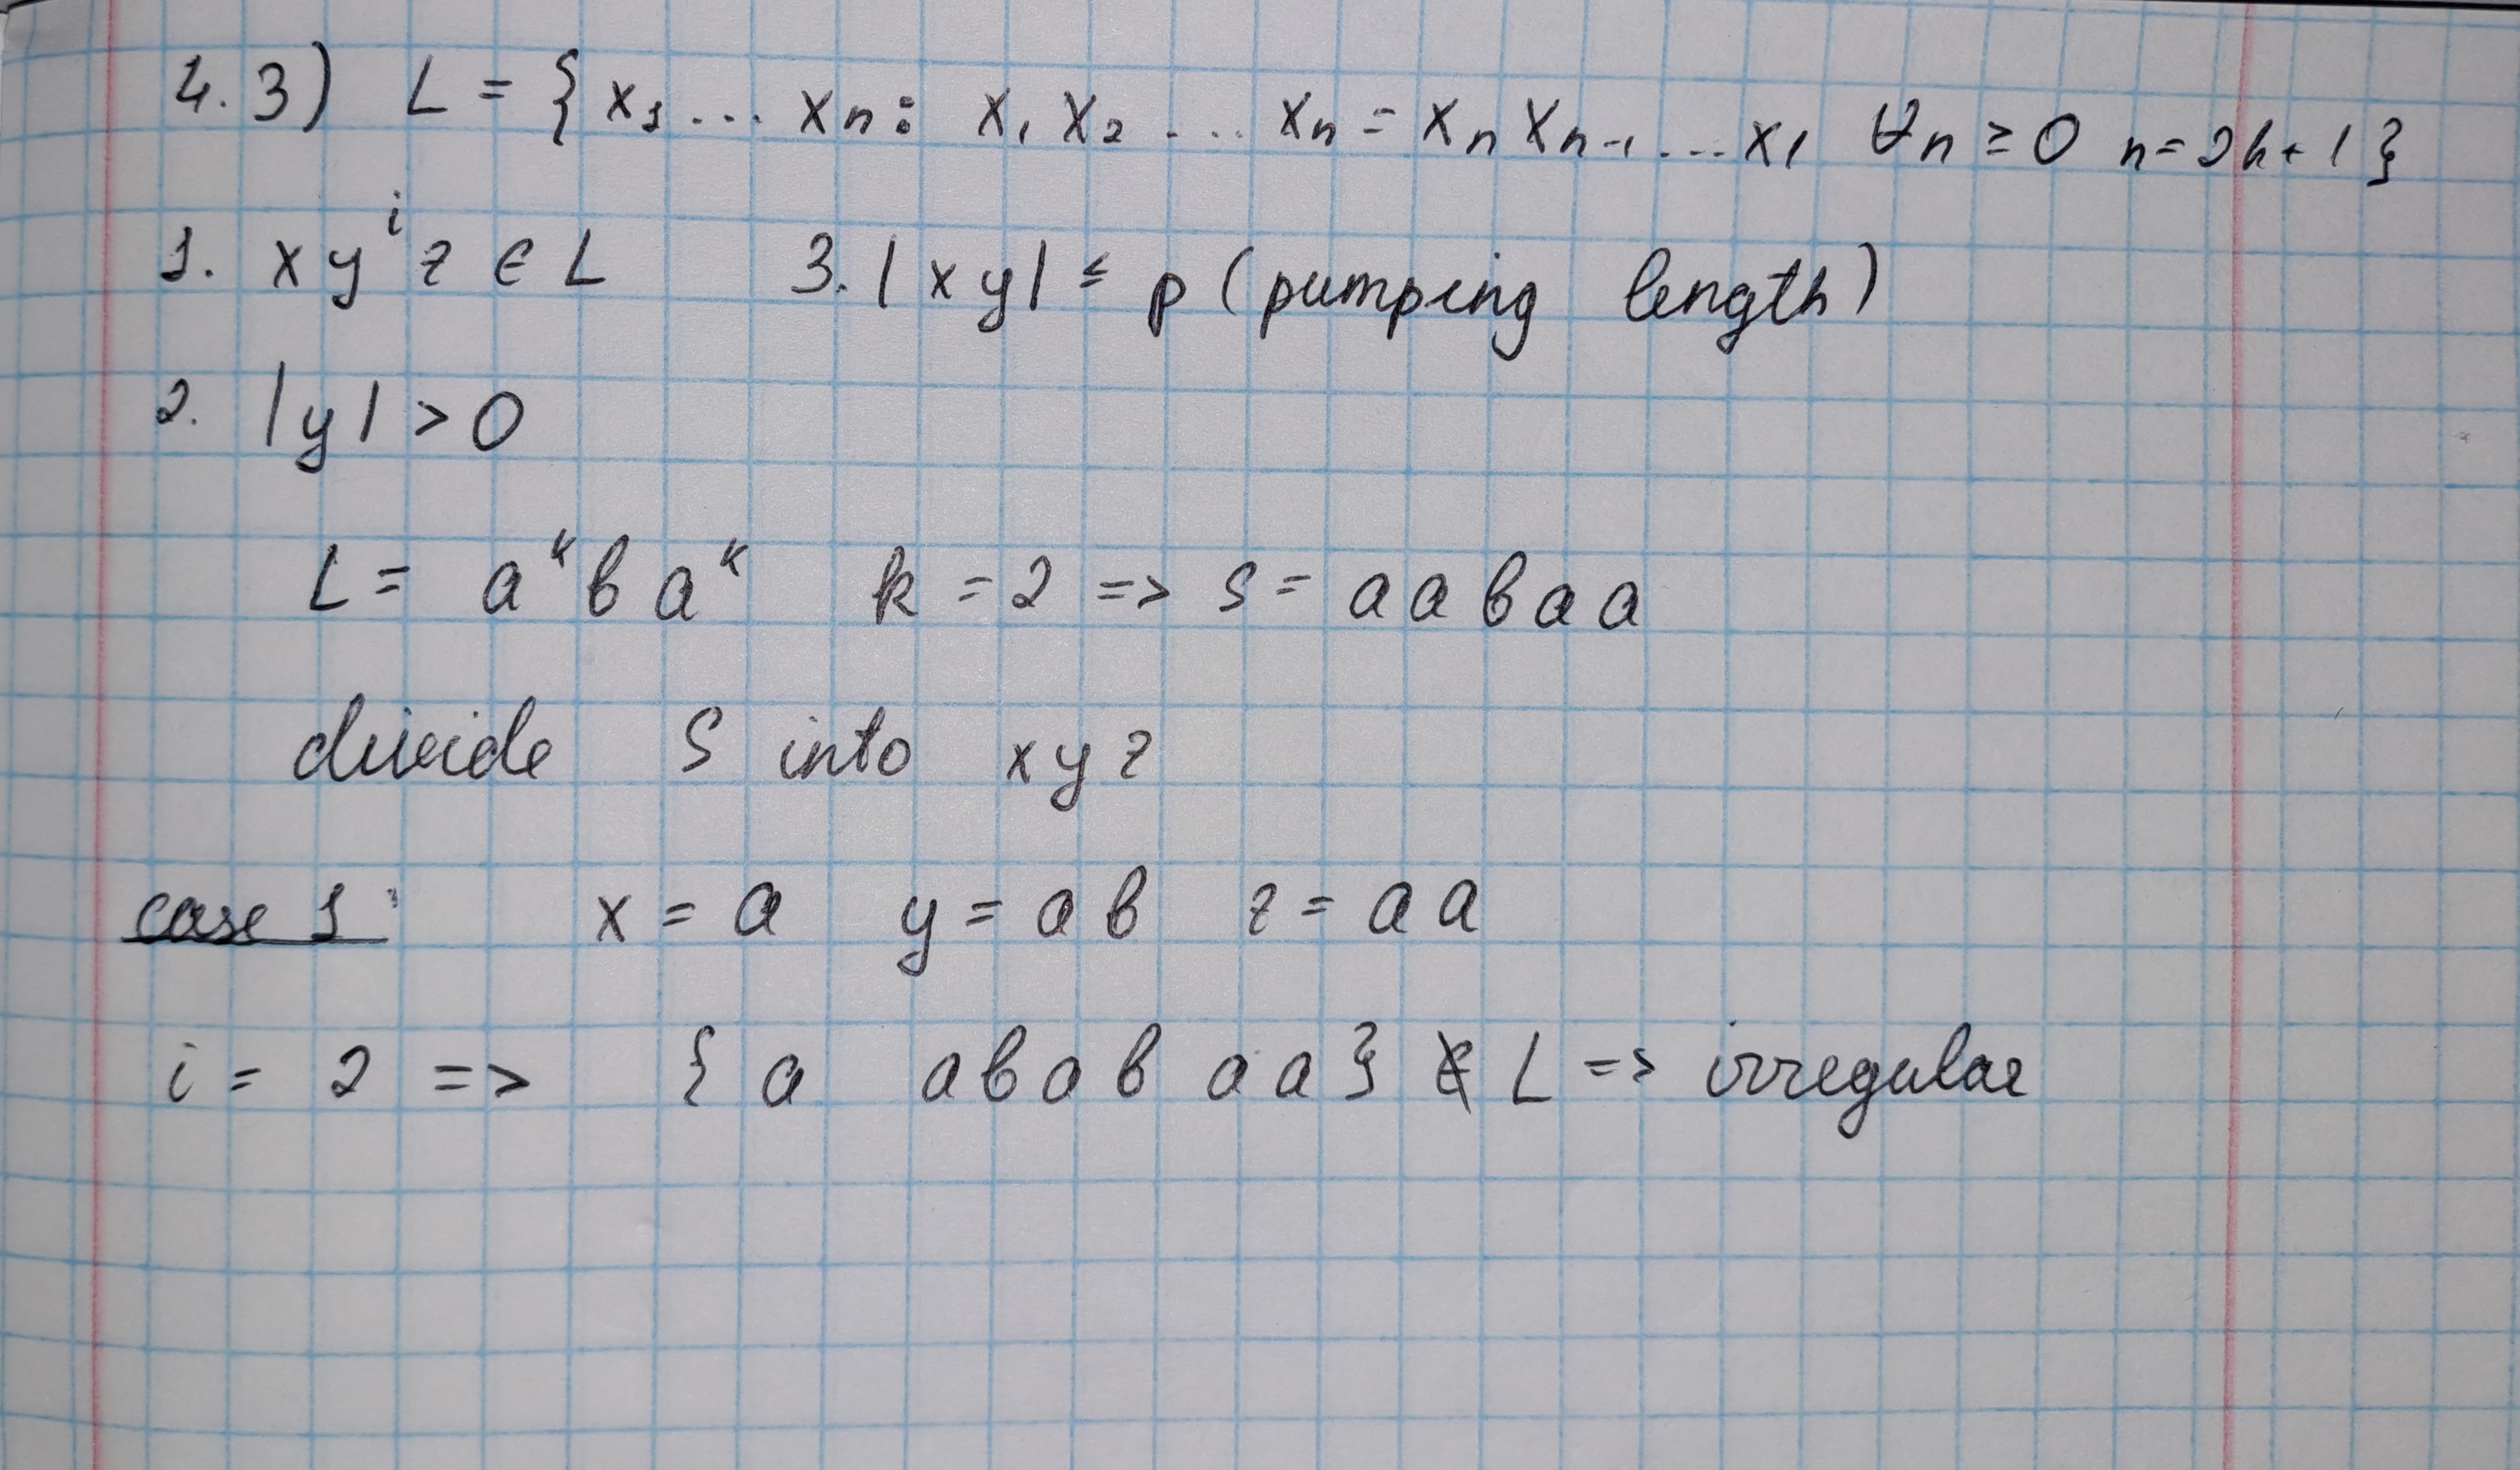 4.3) L = { x₁ ... xₙ : x₁ x₂ ... xₙ = xₙ xₙ₋₁ ... x₁ ∀n ≥ 0 n = 2k + 1 }
1. x yⁱ z ∈ L 3. | x y | ≤ p ( pumping length )
2. | y | > 0
L = aᵏ b aᵏ k = 2 => S = a a b a a
divide S into x y z
case 1: x = a y = a b z = a a
i = 2 => { a a b a b a a } ∉ L => irregular